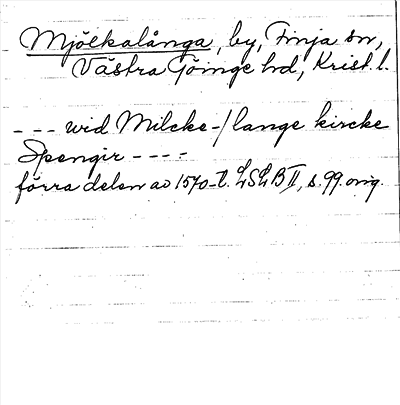 Mjölkalånga, by, Finja sn,
Västra Göinge hd, Krist. l.
--- wid Milcke-/lange kircke
Spengir ----
förra delen av 1570-t. LSLB II, s. 99. orig.